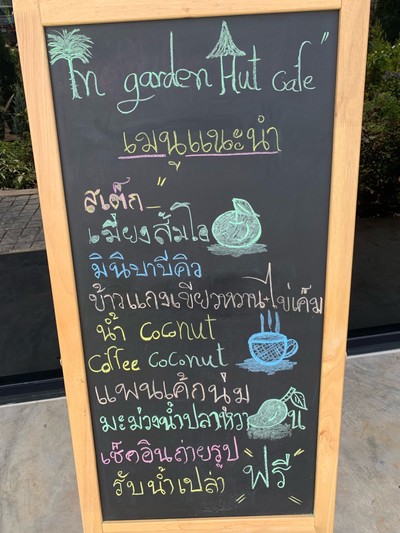 In garden Hut Cafe"
เมนูแนะนำ
สเต็ก
เมี่ยงส้มโอ
มินิบาบีคิว
ข้าวแกงเขียวหวาน+ไข่เค็ม
น้ำ Coconut
Coffee Coconut
แพนเค้กนุ่ม
มะม่วงน้ำปลาหวาน
เช็คอินถ่ายรูป
รับน้ำเปล่า "ฟรี"